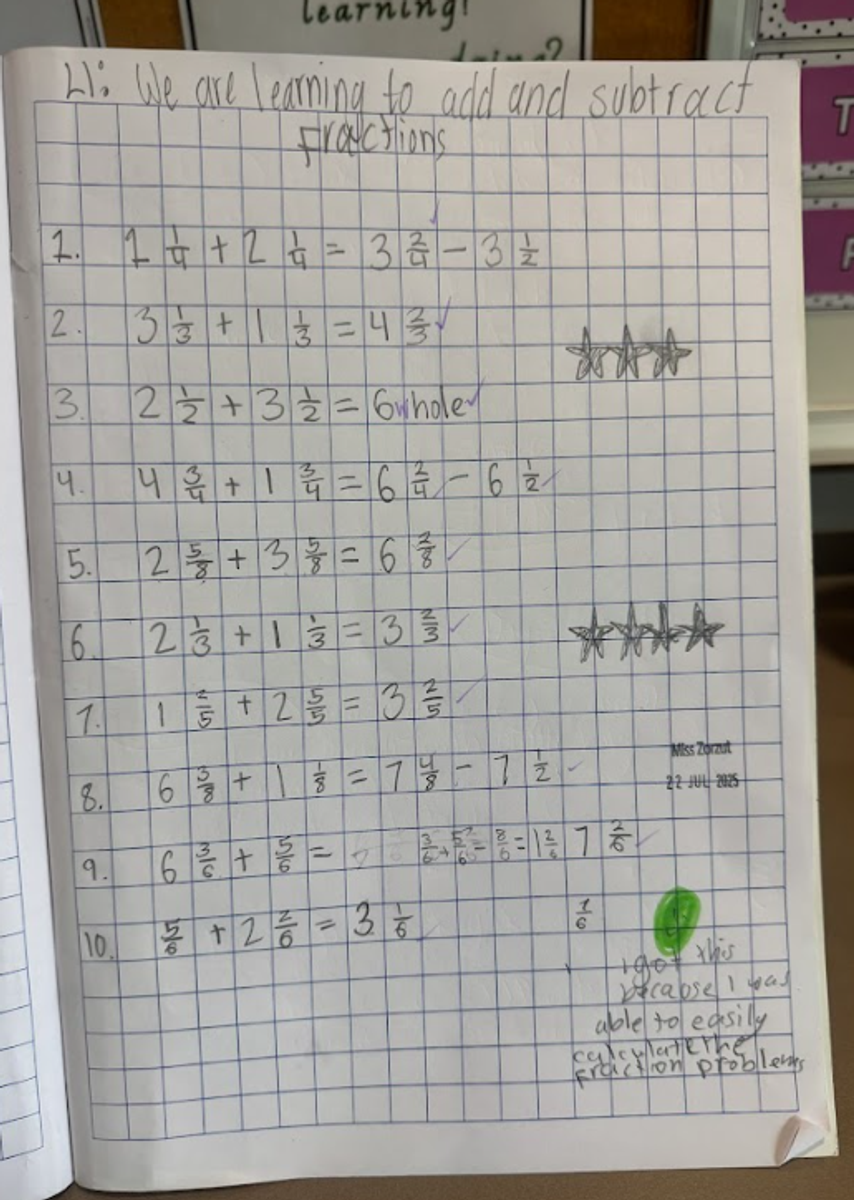 learning!
doing?
T
LI: We are learning to add and subtract
fractions
1. 1 1/4 + 2 1/4 = 3 2/4 - 3 1/2
2. 3 1/3 + 1 1/3 = 4 2/3
3. 2 1/2 + 3 1/2 = 6 whole
4. 4 3/4 + 1 3/4 = 6 2/4 - 6 1/2
5. 2 5/8 + 3 5/8 = 6 2/8
6. 2 1/3 + 1 1/3 = 3 2/3
7. 1 2/5 + 2 5/5 = 3 2/5
8. 6 3/8 + 1 1/8 = 7 4/8 - 7 1/2
Miss Zorzut
22 JUL 2025
9. 6 3/6 + 5/6 = 3/6 + 5/6 = 8/6 = 1 2/6 7 2/6
10. 5/6 + 2 2/6 = 3 1/6 7/6
i got this
because I was
able to easily
calculate the
fraction problems